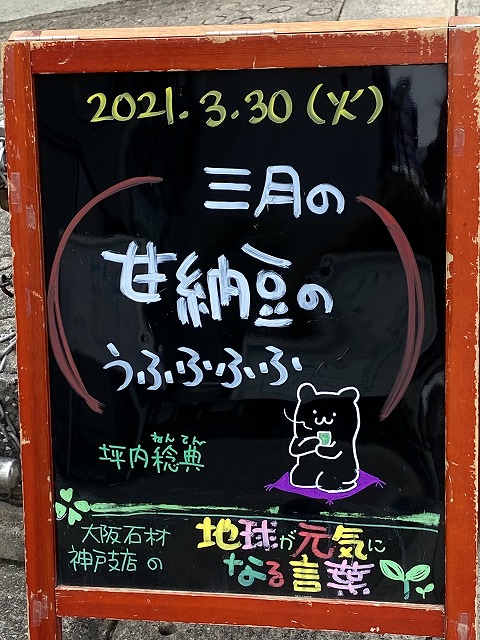 2021.3.30(火)
三月の
甘納豆の
うふふふふ
ねんてん
坪内稔典
大阪石材
神戸支店の
地球が元気に
なる言葉